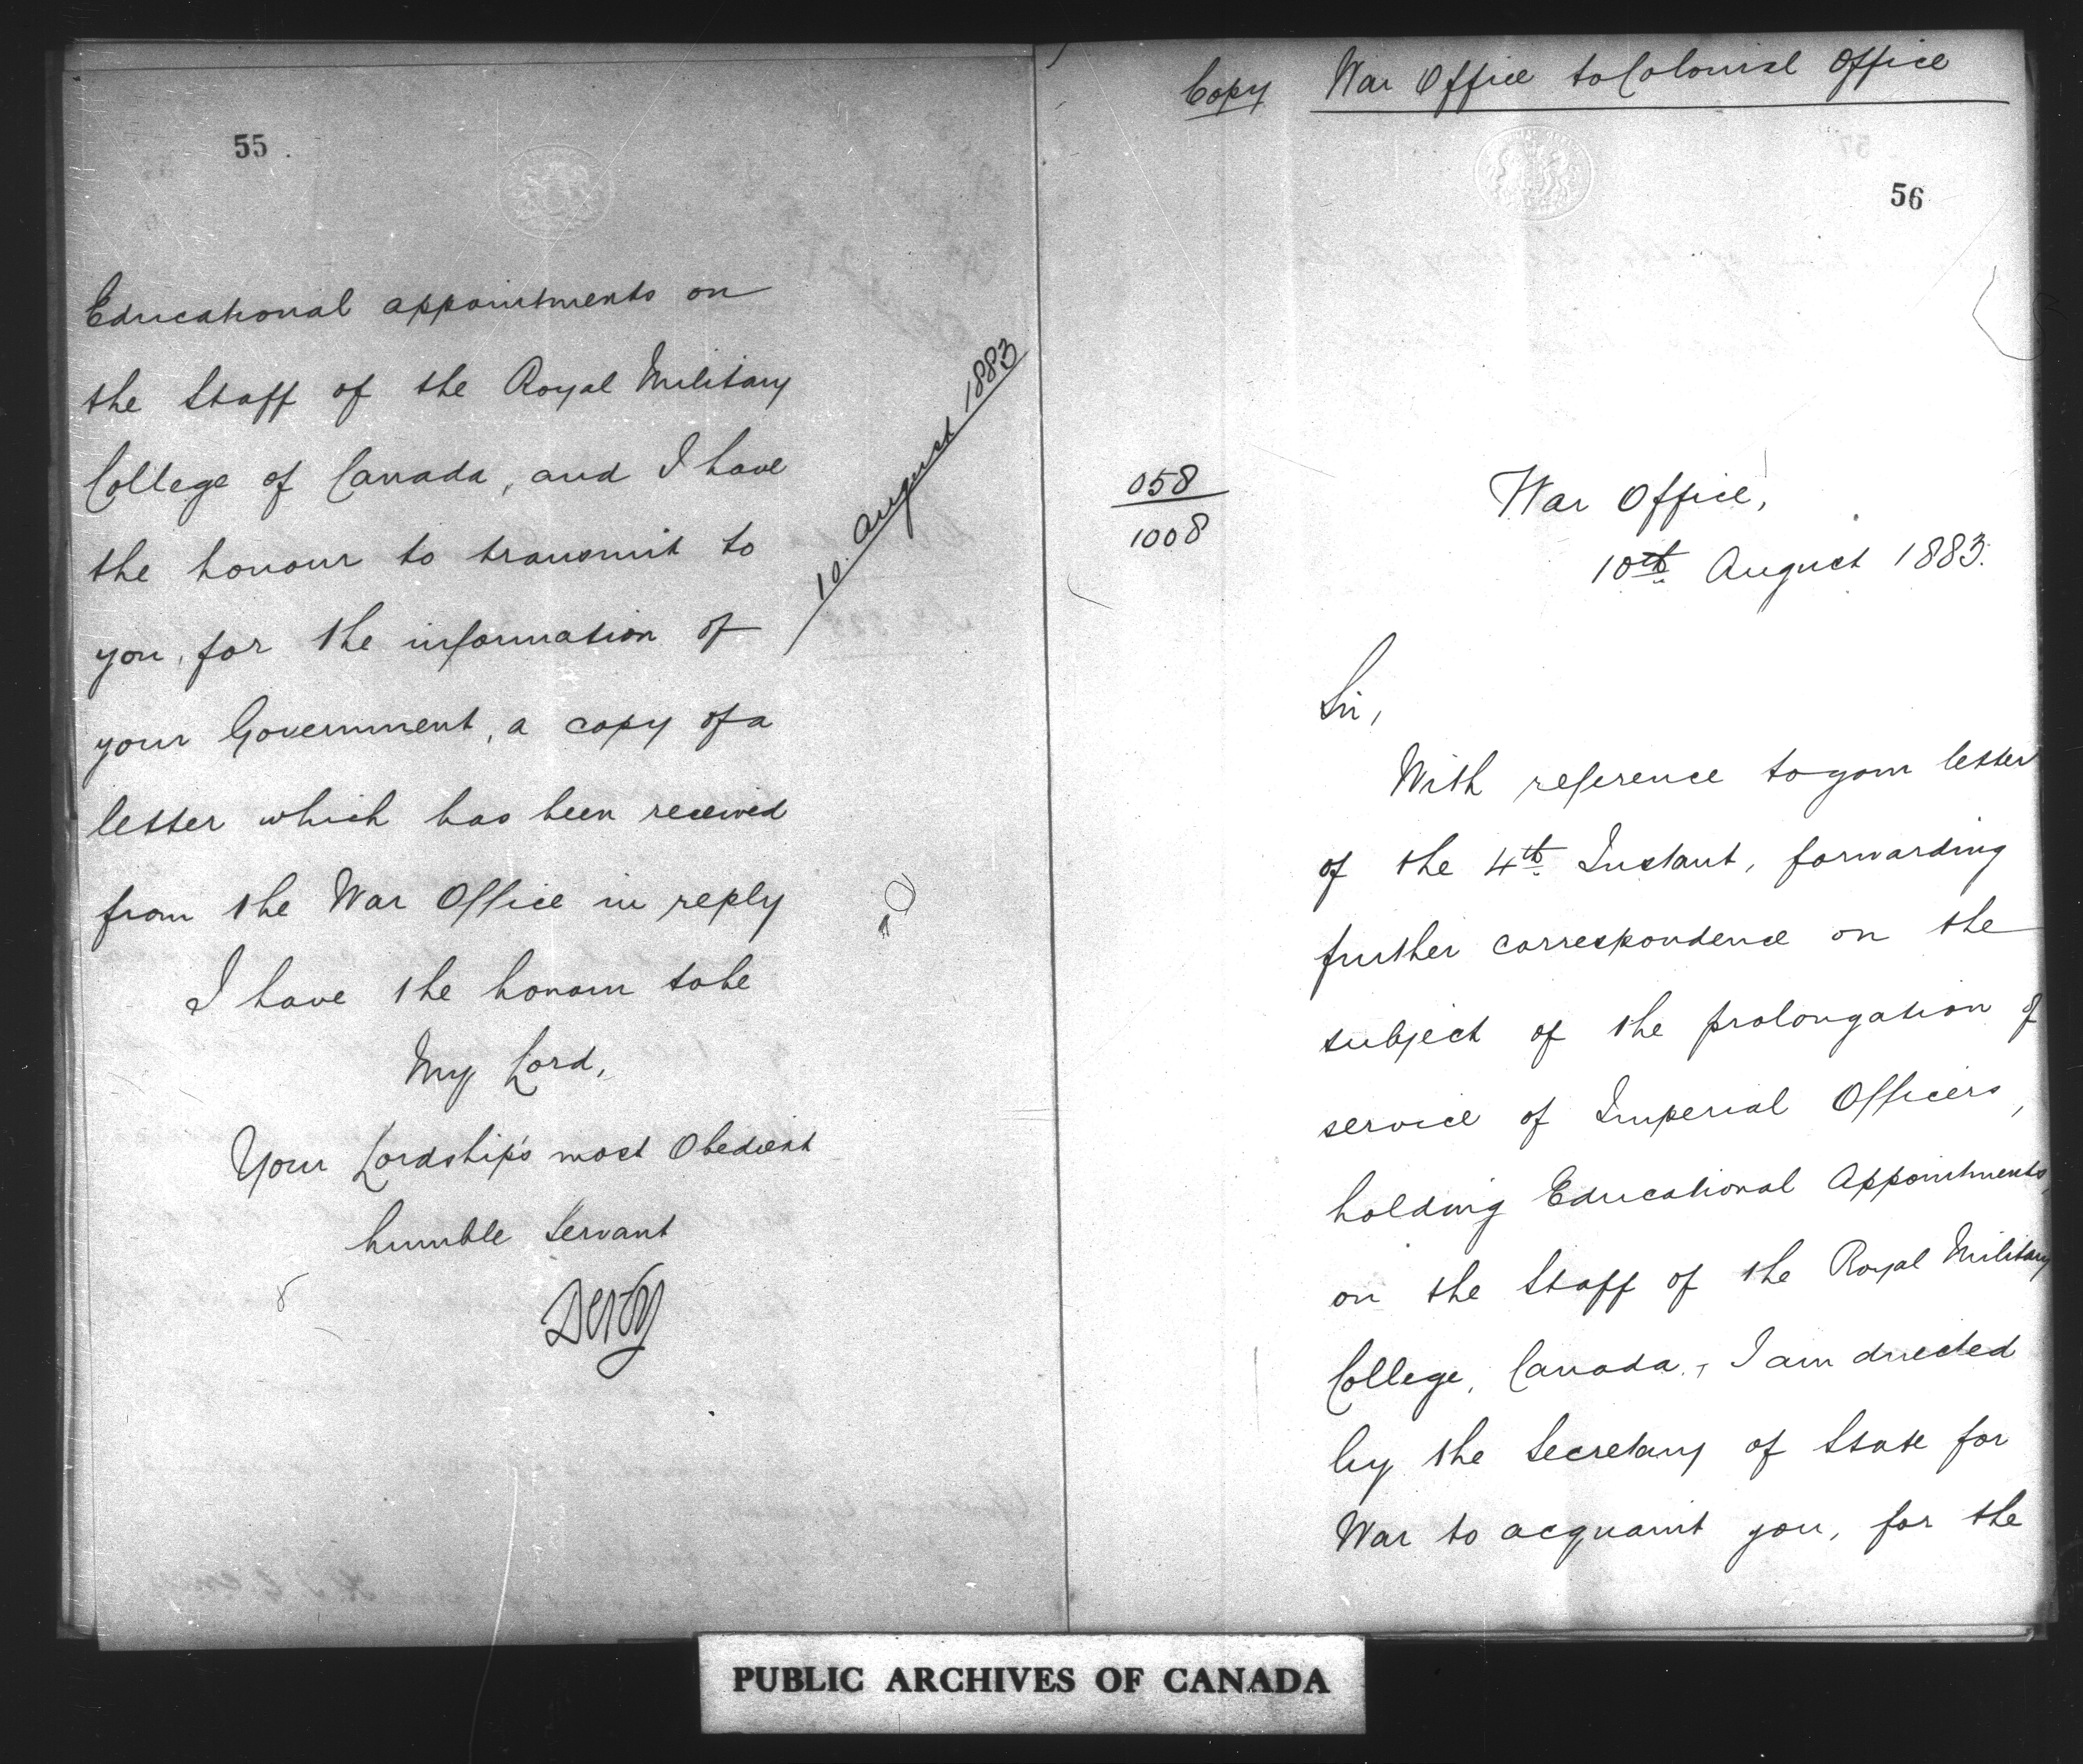 55
Educational appointments on
the Staff of the Royal Military
College of Canada, and I have
the honour to transmit to
you, for the information of
your Government, a copy of a
letter which has been received
from the War Office in reply
10. August 1883
I have the honour to be
My Lord,
Your Lordship's most Obedient
humble Servant
Derby
Copy War Office to Colonial Office
56
058
1008
War Office,
10th August 1883.
Sir,
With reference to your letter
of the 4th Instant, forwarding
further correspondence on the
subject of the prolongation of
service of Imperial Officers,
holding Educational Appointments,
on the Staff of the Royal Military
College, Canada, I am directed
by the Secretary of State for
War to acquaint you, for the
PUBLIC ARCHIVES OF CANADA